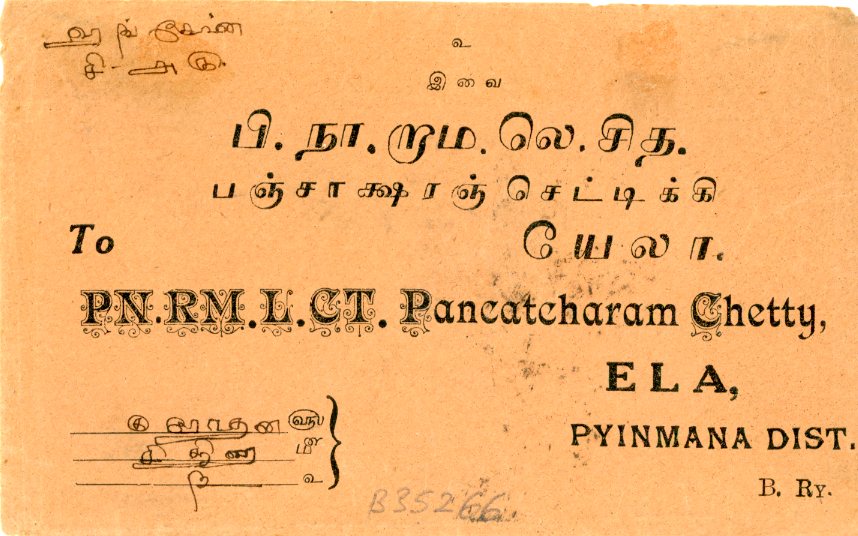 உ
இவை
பி. நா. றும. லெ. சித.
பஞ்சாக்ஷரஞ் செட்டிக்கி
To யேலா.
PN.RM.L.CT. Pancatcharam Chetty,
ELA,
PYINMANA DIST.
B. RY.
B35266